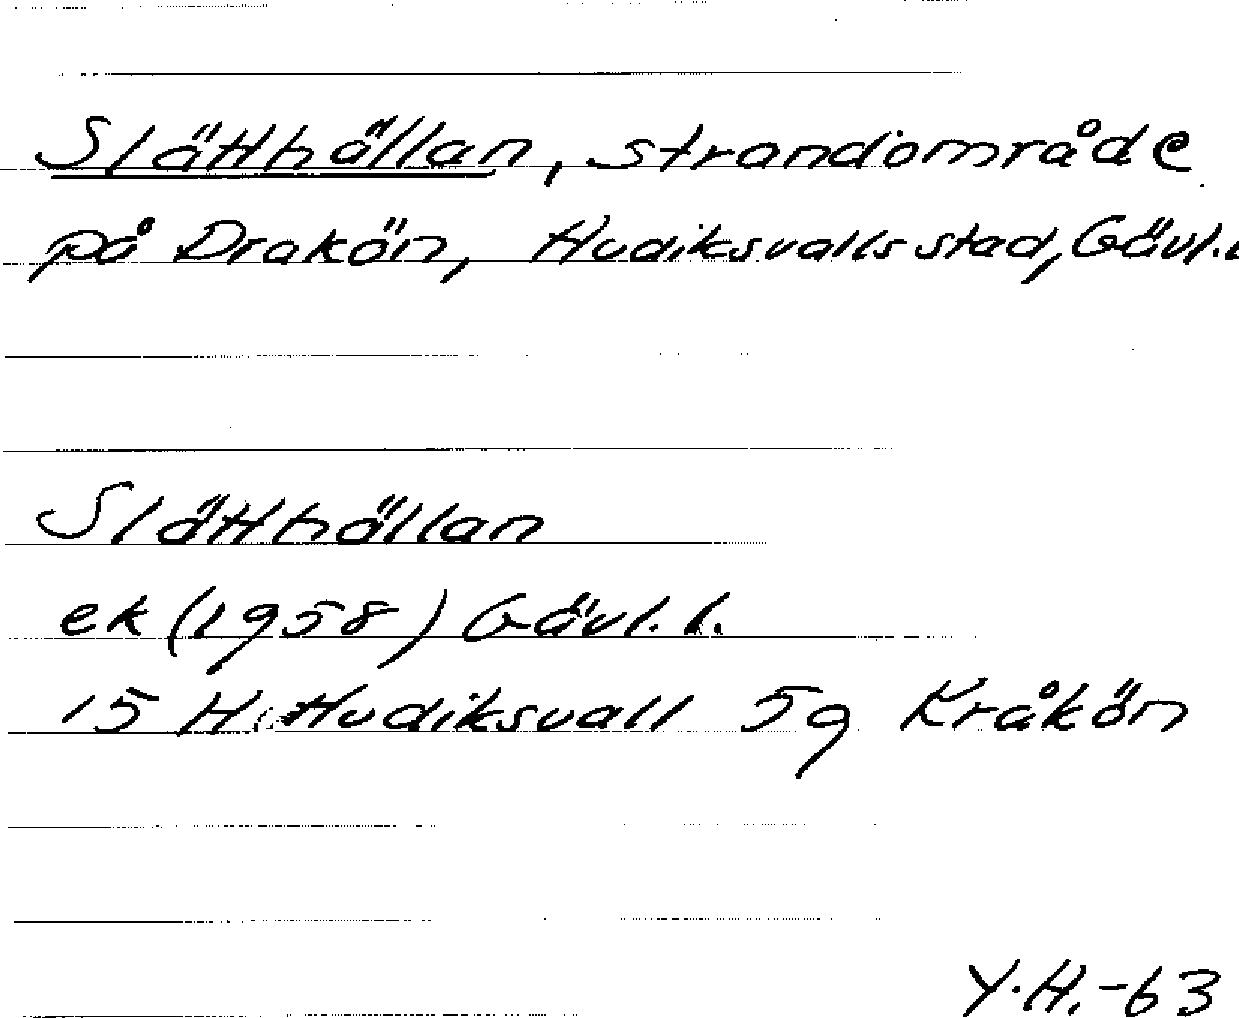 Slätthällan, strandområde
på Drakön, Hudiksvalls stad, Gävl.l
Slätthällan
ek (1958) Gävl. l.
15 H Hudiksvall 5g Kråkön
Y.H.-63